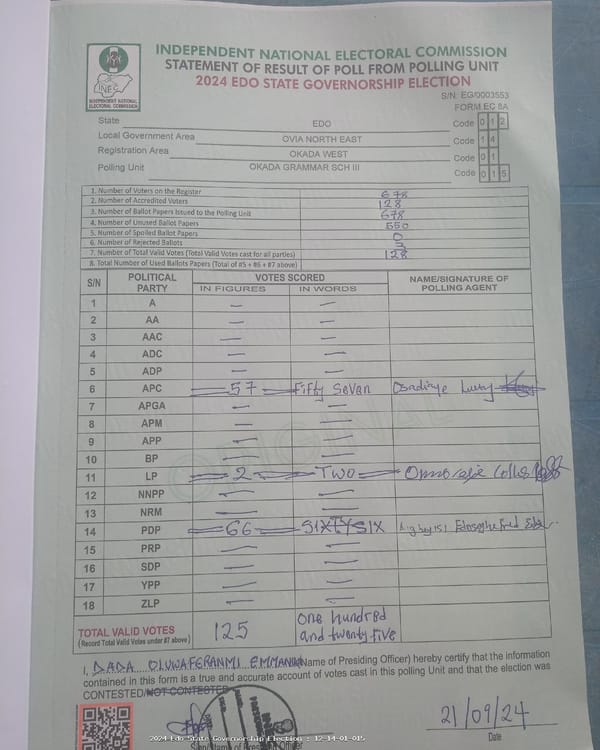 INDEPENDENT NATIONAL ELECTORAL COMMISSION
STATEMENT OF RESULT OF POLL FROM POLLING UNIT
2024 EDO STATE GOVERNORSHIP ELECTION
INEC
INDEPENDENT NATIONAL
ELECTORAL COMMISSION
S/N: EG/0003553
FORM EC 8A
State EDO Code 0 1 2
Local Government Area OVIA NORTH EAST Code 1 4
Registration Area OKADA WEST Code 0 1
Polling Unit OKADA GRAMMAR SCH III Code 0 1 5
1. Number of Voters on the Register 678
2. Number of Accredited Voters 128
3. Number of Ballot Papers Issued to the Polling Unit 678
4. Number of Unused Ballot Papers 550
5. Number of Spoiled Ballot Papers 0
6. Number of Rejected Ballots 3
7. Number of Total Valid Votes (Total Valid Votes cast for all parties) 128
8. Total Number of Used Ballots Papers (Total of #5 + #6 + #7 above)
S/N POLITICAL PARTY VOTES SCORED NAME/SIGNATURE OF POLLING AGENT
IN FIGURES IN WORDS
1 A — —
2 AA — —
3 AAC — —
4 ADC — —
5 ADP — —
6 APC 57 Fifty Seven
7 APGA — —
8 APM — —
9 APP — —
10 BP — —
11 LP 2 TWO
12 NNPP — —
13 NRM — —
14 PDP 66 SIXTYSIX
15 PRP — —
16 SDP — —
17 YPP — —
18 ZLP — —
TOTAL VALID VOTES 125 one hundred
(Record Total Valid Votes under #7 above) and twenty five
I, DADA OLUWAFERANMI EMMANUEL (Name of Presiding Officer) hereby certify that the information
contained in this form is a true and accurate account of votes cast in this polling Unit and that the election was
CONTESTED/NOT CONTESTED
21/09/24
Date
2024 Edo State Governorship Election : 12-14-01-015